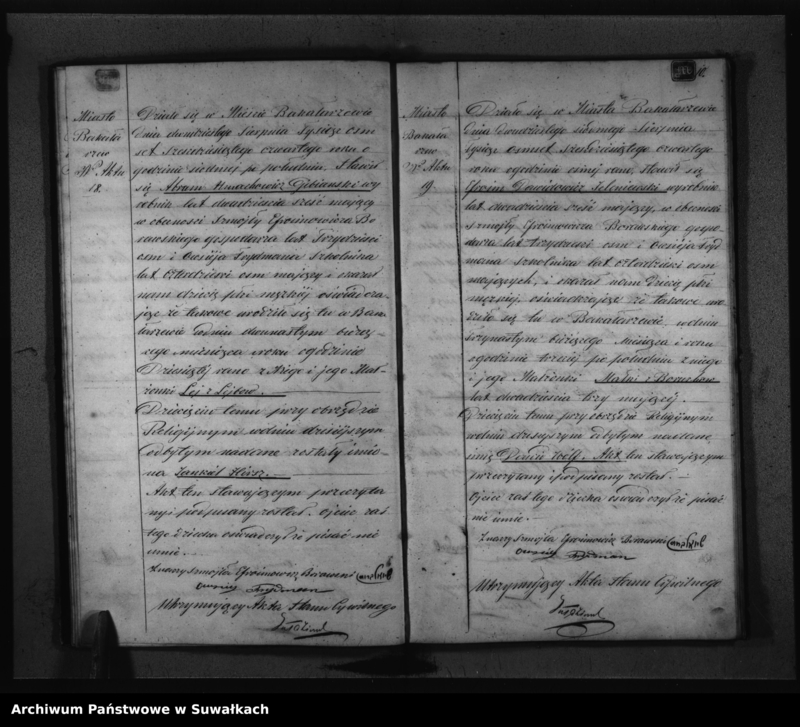 Miasto
Bakała
rzew
No Aktu
18.
Działo się w Mieście Bakałarzewie
dnia dwudziestego Sierpnia Tysiąc ośm
set sześćdziesiątego czwartego roku o
godzinie siódmej po południu. Stawił
się Abram
robnik lat dwadzieścia sześć mający
w obecności Szmojły Efroimowicza Bo
rawskiego gospodarza lat Trzydzieści
ośm i Owsieja Frydmana Szkolnika
lat czterdzieści ośm mający i okazał
nam dziecię płci męzkiej oświadcza
jąc że takowe urodziło się tu w Baka
łarzewie w dniu dwunastym bieżą
cego miesiąca i roku o godzinie
Dziesiątej rano z Niego i jego Mał
żonki
Dziecięciu temu przy obrzędzie
Religijnym w dniu dzisiejszym
odbytym nadane zostały imio
na Jankiel Hersz.
Akt ten stawającym przeczyta
ny i podpisany został. Ojciec zaś
tego dziecka oświadczył że pisać nie
umie.
Szmojła Efroimowicz Borawski
Owsiej Frydman
Utrzymujący Akta Stanu Cywilnego
Miasto
Bakała
rzew
No Aktu
19.
Działo się w Mieście Bakałarzewie
dnia dwudziestego siódmego Sierpnia
Tysiąc ośmset sześćdziesiątego czwartego
roku o godzinie ósmej rano, Stawił się
Dawidowicz wyrobnik
lat dwadzieścia sześć mający, w obecności
Szmojły Efroimowicza Borawskiego gospo
darza lat trzydzieści ośm i Owsieja Fryd
mana Szkolnika lat czterdzieści ośm
mających, i okazał nam dziecię płci
męzkiej, oświadczając że takowe uro
dziło się tu w Bakałarzewie w dniu
bieżącego Miesiąca i roku
o godzinie trzeciej po południu z niego
i jego Małżonki
lat dwadzieścia trzy mającej.
Dziecięciu temu przy obrzędzie Religijnym
w dniu dzisiejszym odbytym nadane
imię Dawid Wolf. Akt ten stawającym
przeczytany i podpisany został. —
Ojciec zaś tego dziecka oświadczył że pisać
nie umie. —
Szmojła Efroimowicz Borawski
Owsiej Frydman
Utrzymujący Akta Stanu Cywilnego
Archiwum Państwowe w Suwałkach